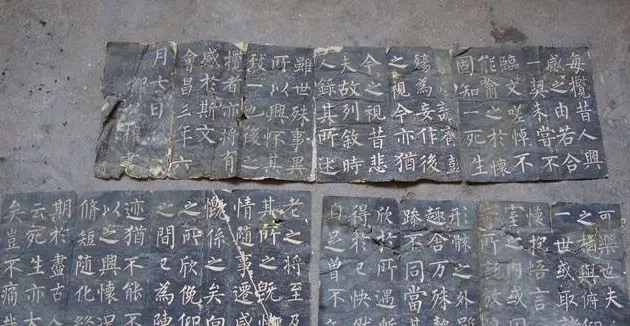 每攬昔人興
感之由若合
一契未嘗不
臨文嗟悼不
能喻之於懷
固知一死生
齊彭
殤為妄作後
之視今亦猶
今之視昔悲
夫故列敘時
人錄其所述
雖世殊事異
所以興懷其
致一也後之
攬者亦將有
感於斯文
會昌三年六
月七日
權書
可樂也夫
之相與俯
一世或取諸
懷抱悟言
室之內或因
寄所託放
形骸之外雖
趣舍万殊靜
躁不同當其
欣於所遇暫
得於己快然
自足曾不
老之將至及
其所之既惓
情隨事遷感
慨係之矣向
之所欣俛仰
之間已為陳
迹猶不能不
以之興懷況
脩短隨化終
期於盡古人
云死生亦大
矣豈不痛哉